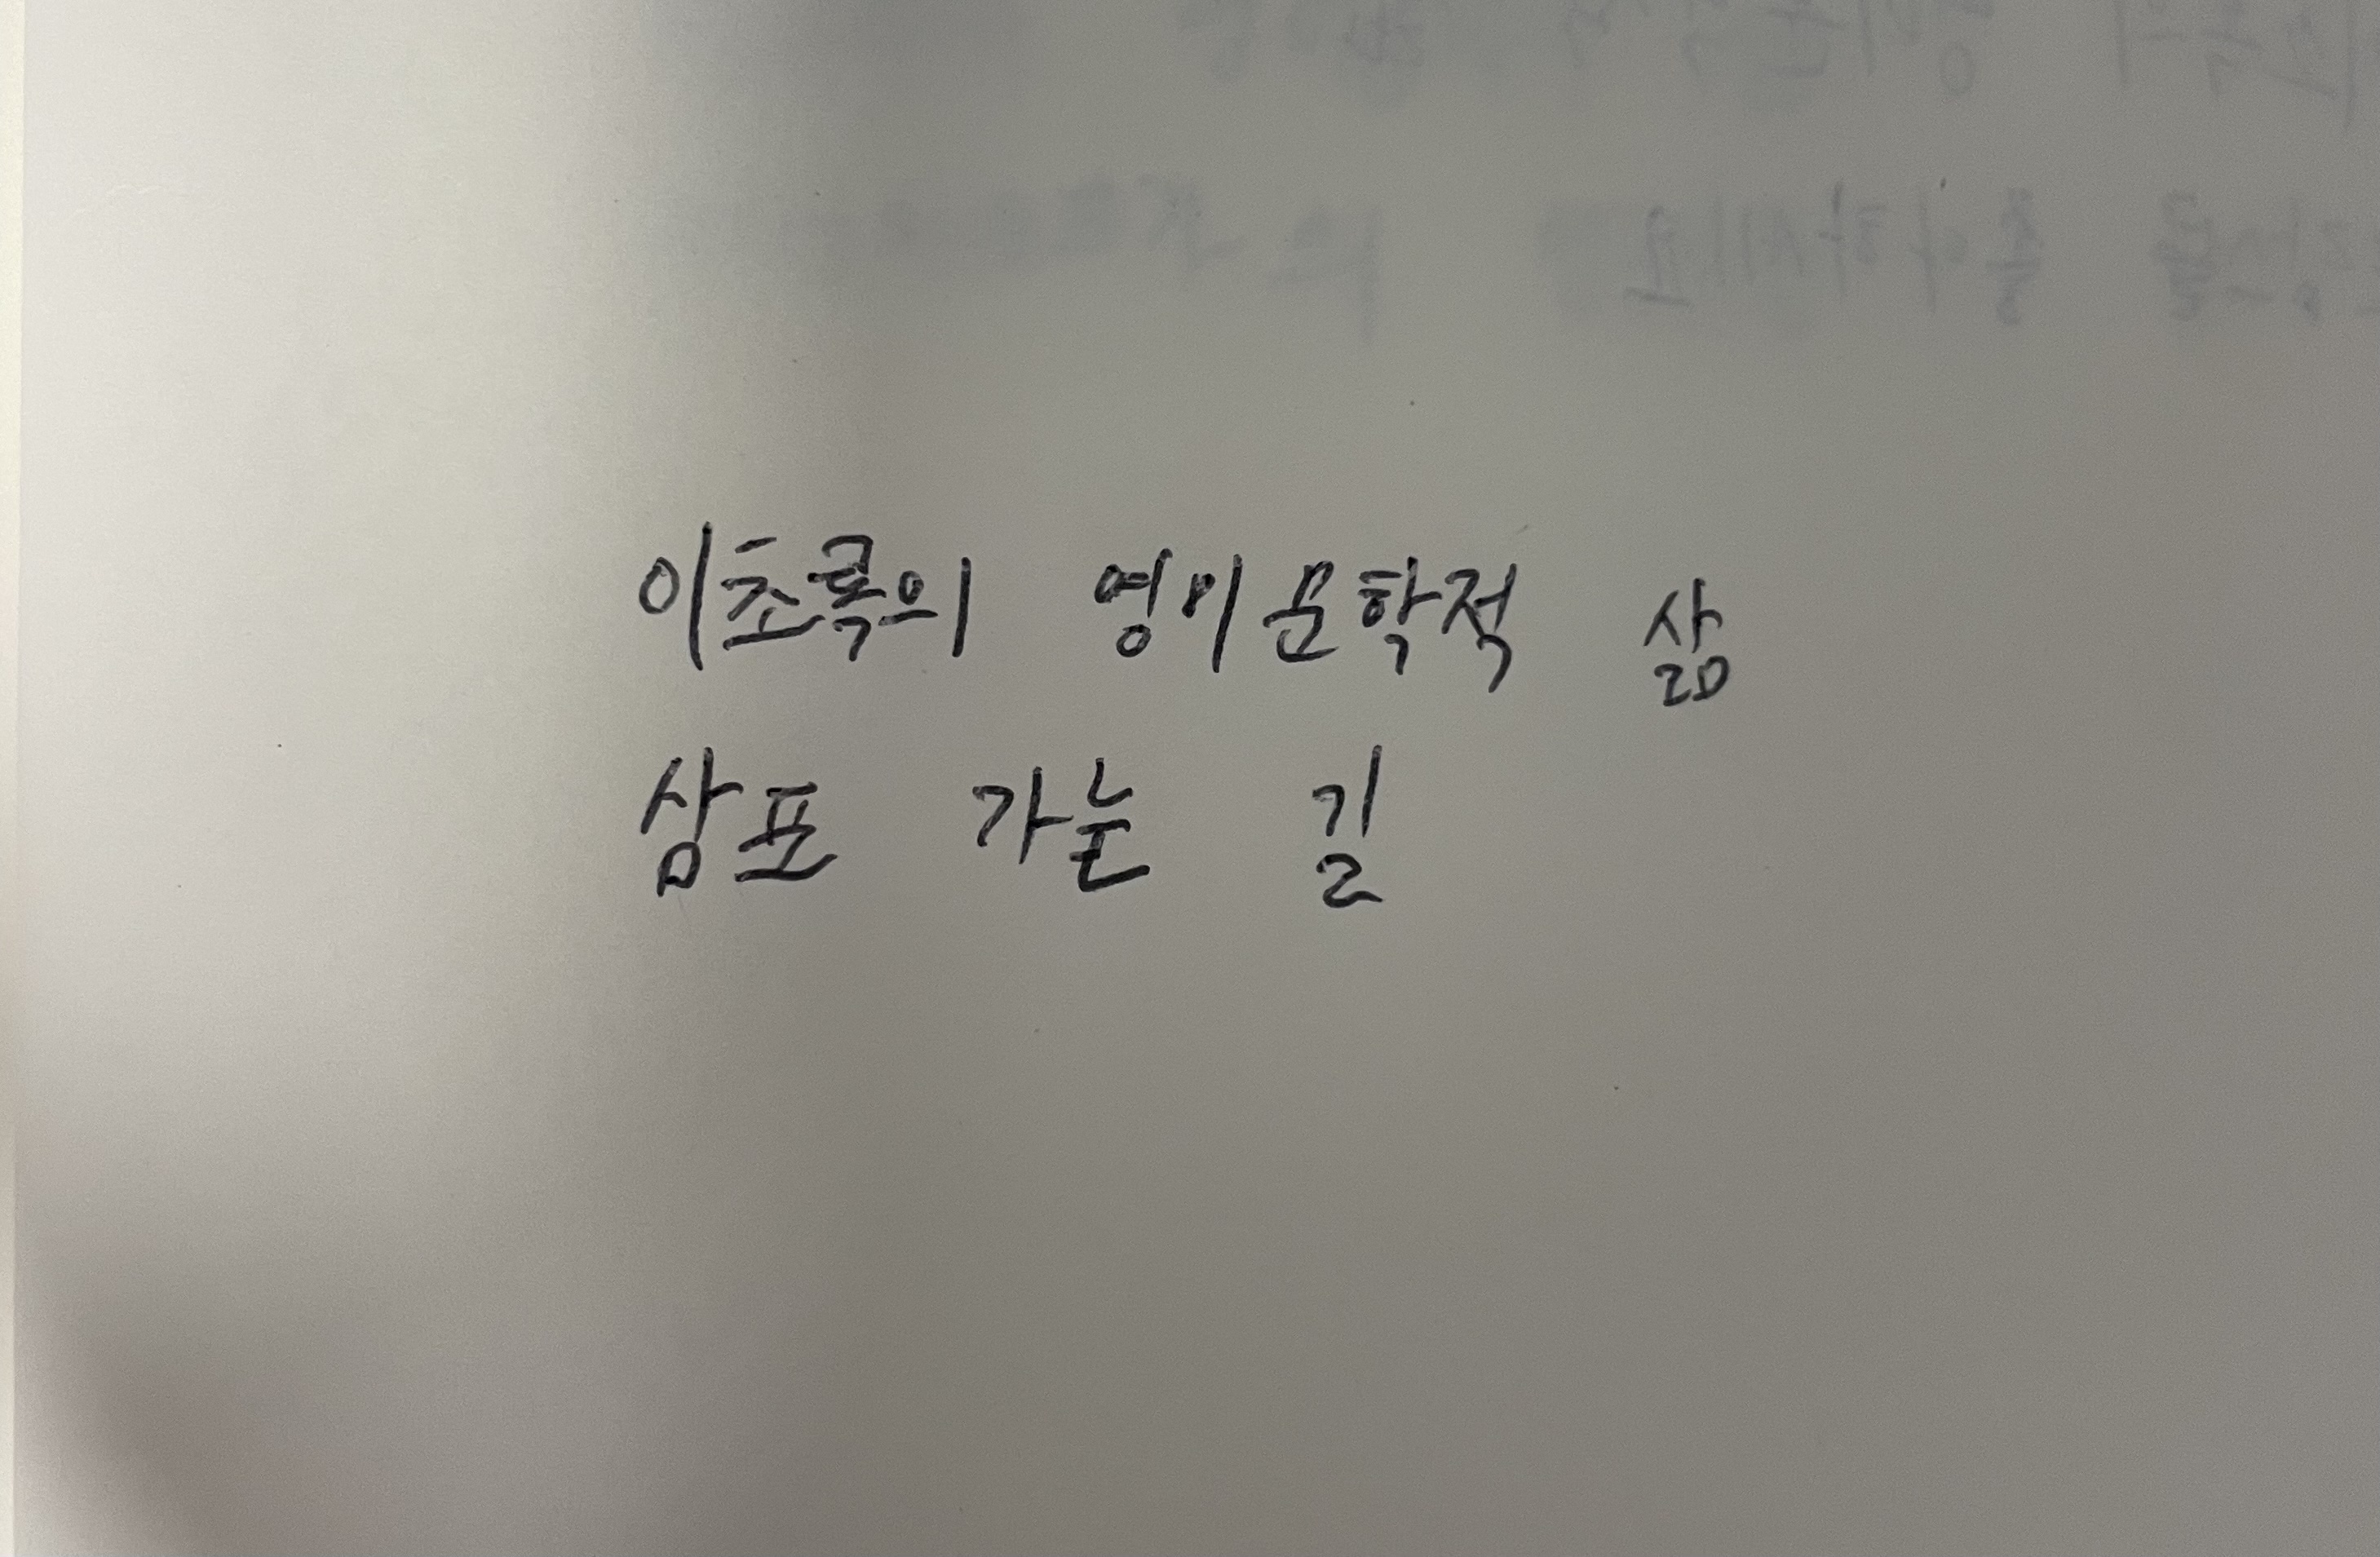 이초록의 영미문학적 삶
삼포 가는 길